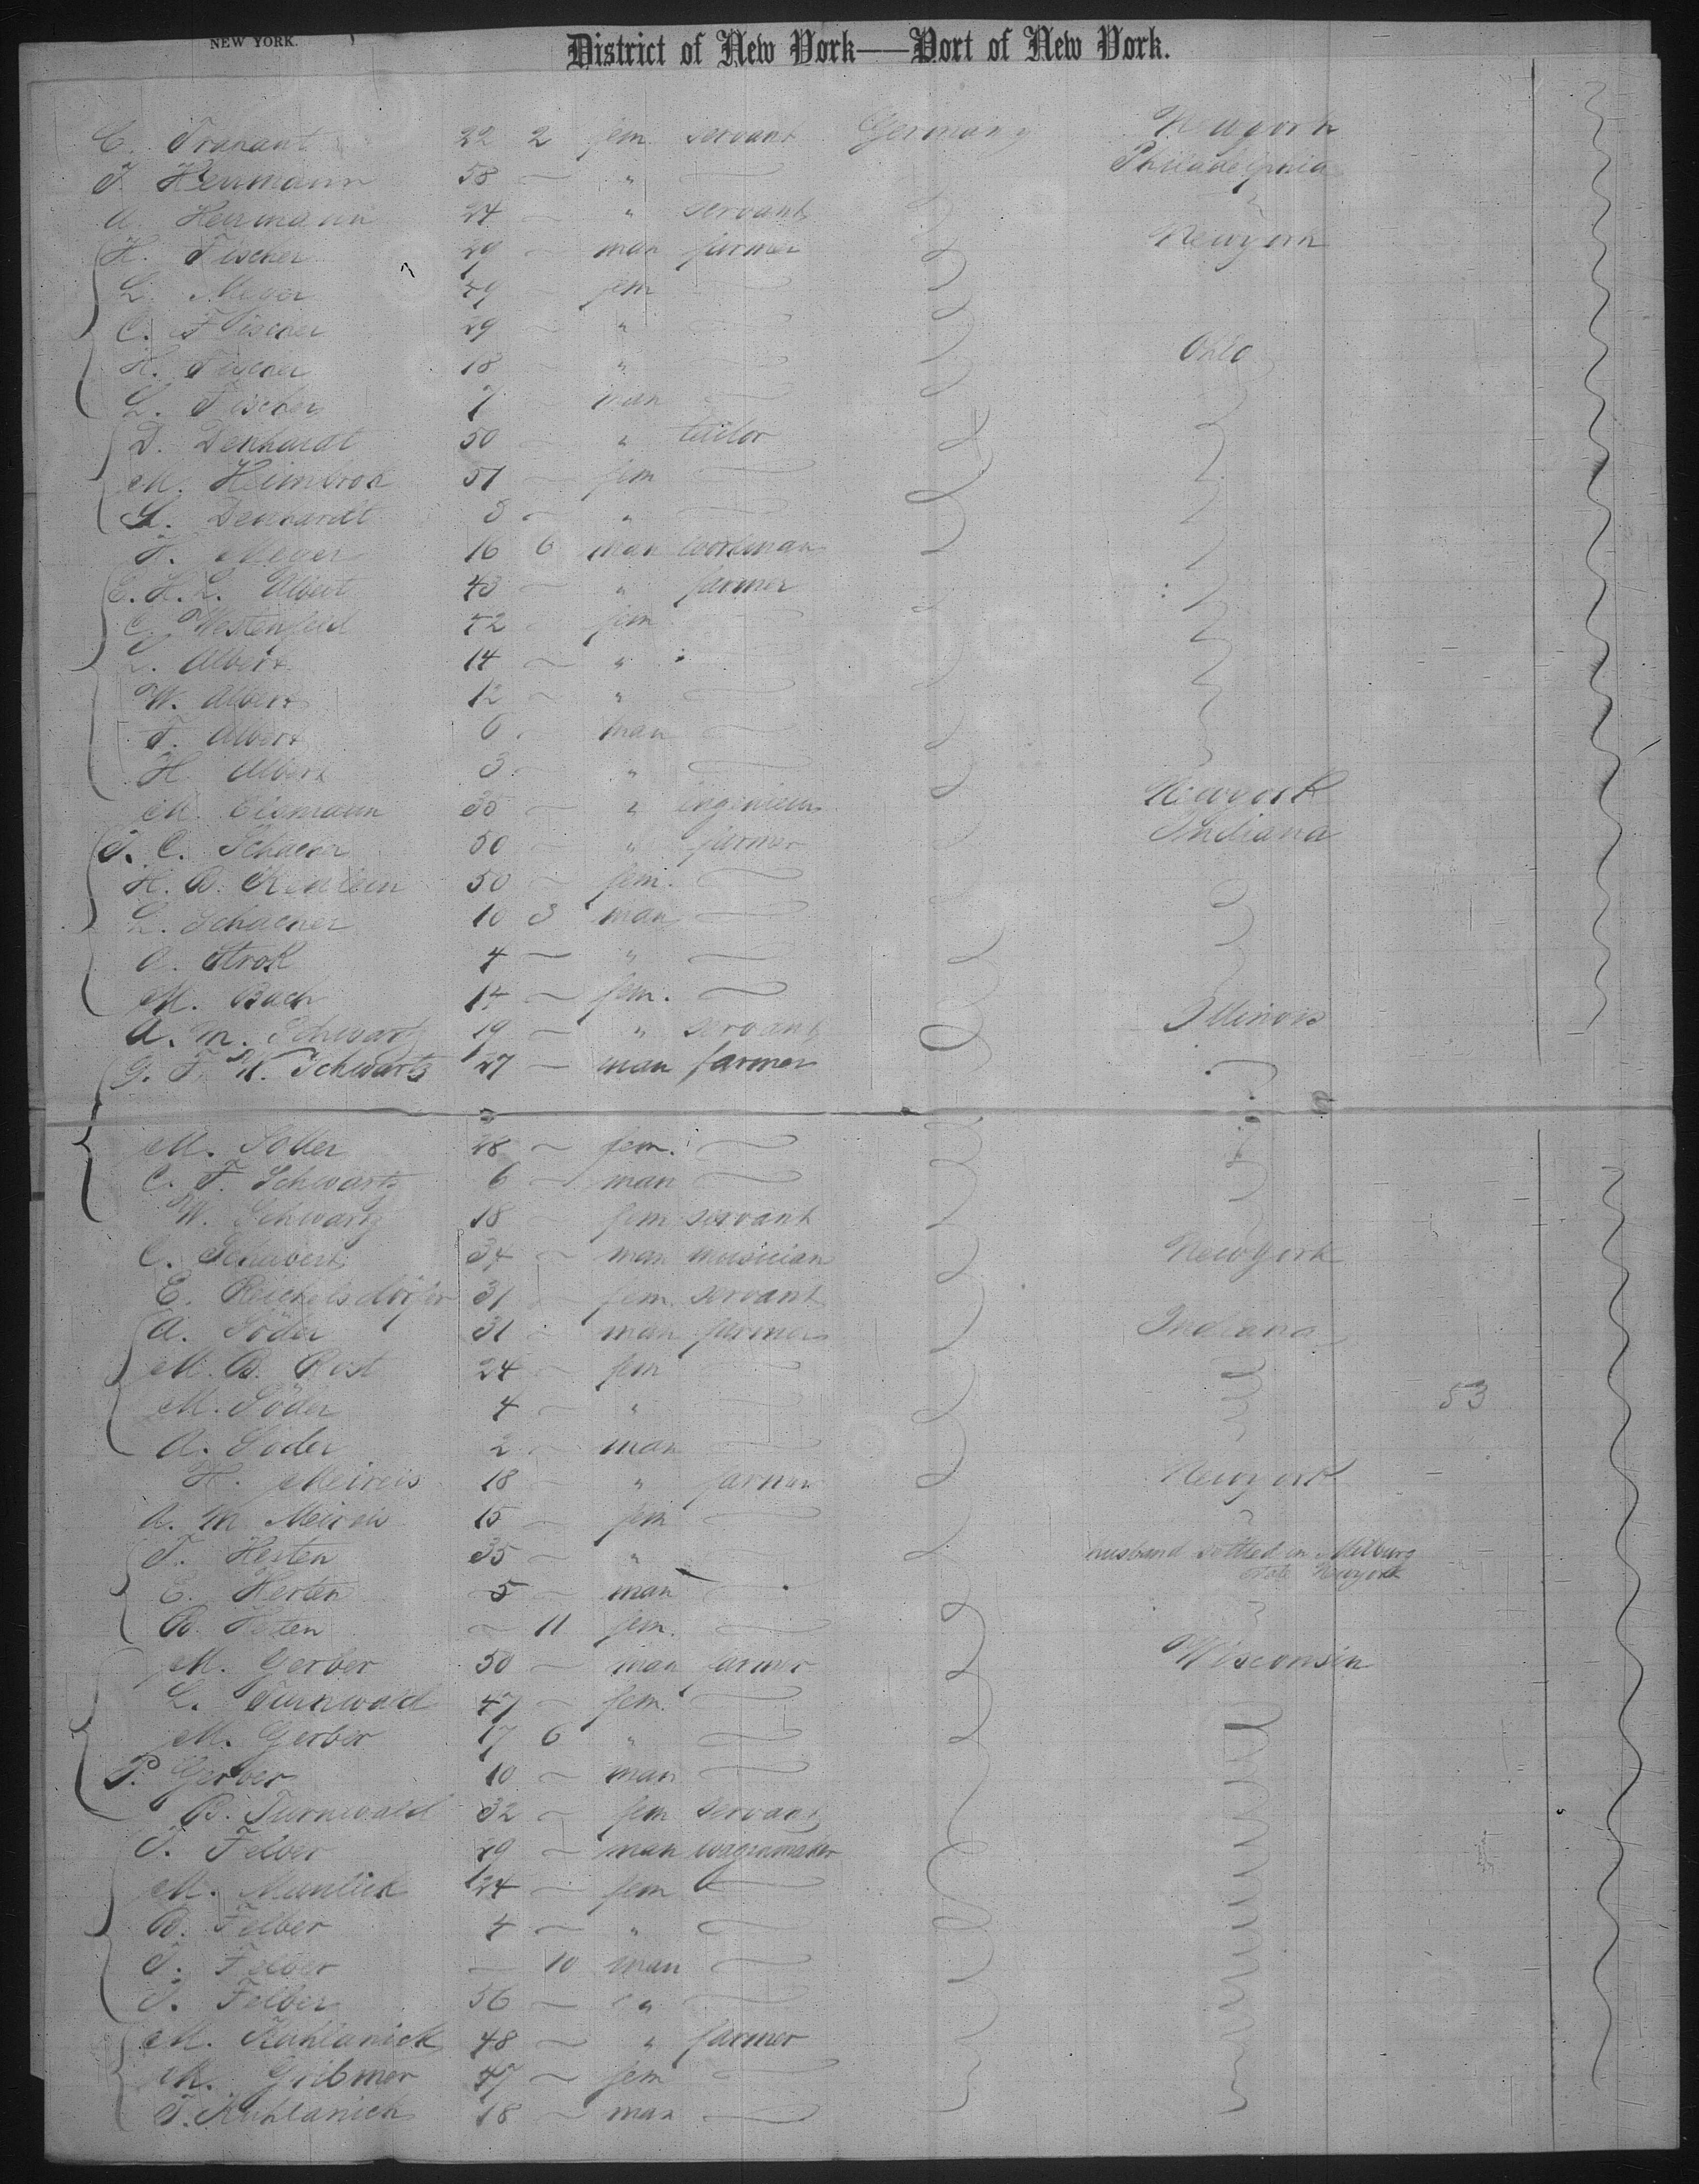 NEW YORK.
District of New York——Port of New York.
C. Trahant 22 2 fem servant Germany Newyork
T Heumann 58 — " — Philadelphia
A. Heumann 24 — " servant "
H. Fischer 29 — man farmer Newyork
L. Meyer 49 — fem —
C. Fischer 29 — " —
H. Fischer 18 — " — Ohio
L. Fischer 7 — man —
D. Denhardt 50 — " tailor
M. Heimbrok 51 — fem —
L. Denhardt 8 — " —
H. Meyer 16 6 man workman
E. H. L. Albert 43 — " farmer
C. Westenfeld 42 — fem —
L. Albert 14 — "
W. Albert 12 — " —
F. Albert 6 man —
H. Albert 3 — " —
M. Eismann 35 — " ingenieur Newyork
J. C. Schaener 50 — " farmer Indiana
H. B. 50 — fem. —
L. Schaener 10 3 man —
A. Strok 4 — " —
M. Bach 14 — fem. —
A. M. Schwartz 19 — " servant Illinois
G. F. W. Schwartz 27 — man farmer
M. Söder 28 — fem. —
C. F. Schwartz 6 — man —
W. Schwartz 18 — fem servant
C. Schubert 34 — man musician Newyork
E. Reichelsdörfer 31 — fem. servant
A. Söder 31 — man farmer Indiana
M. B. Rost 24 — fem —
M. Söder 4 — " — 53
A. Söder 2 — man —
H. Meireis 18 — " farmer Newyork
A. M Meireis 15 — fem — "
F. Herten 35 — " — husband settled in Milburg
State Newyork
E. Herten 5 — man —
B. Herten — 11 fem. —
M. Gerber 50 — man farmer Wisconsin
L. Turnwald 47 — fem. —
M. Gerber 17 6 " —
P. Gerber 10 — man —
B. Turnwald 32 — fem servant
J. Felber 29 — man wagenmaker
M. Manlick 24 — fem —
B. Felber 4 — " —
J. Felber — 10 man —
J. Felber 56 — " —
M. Kuhlanick 48 — " farmer
M. Gribmer 47 — fem —
J. Kuhlanick 18 — man —